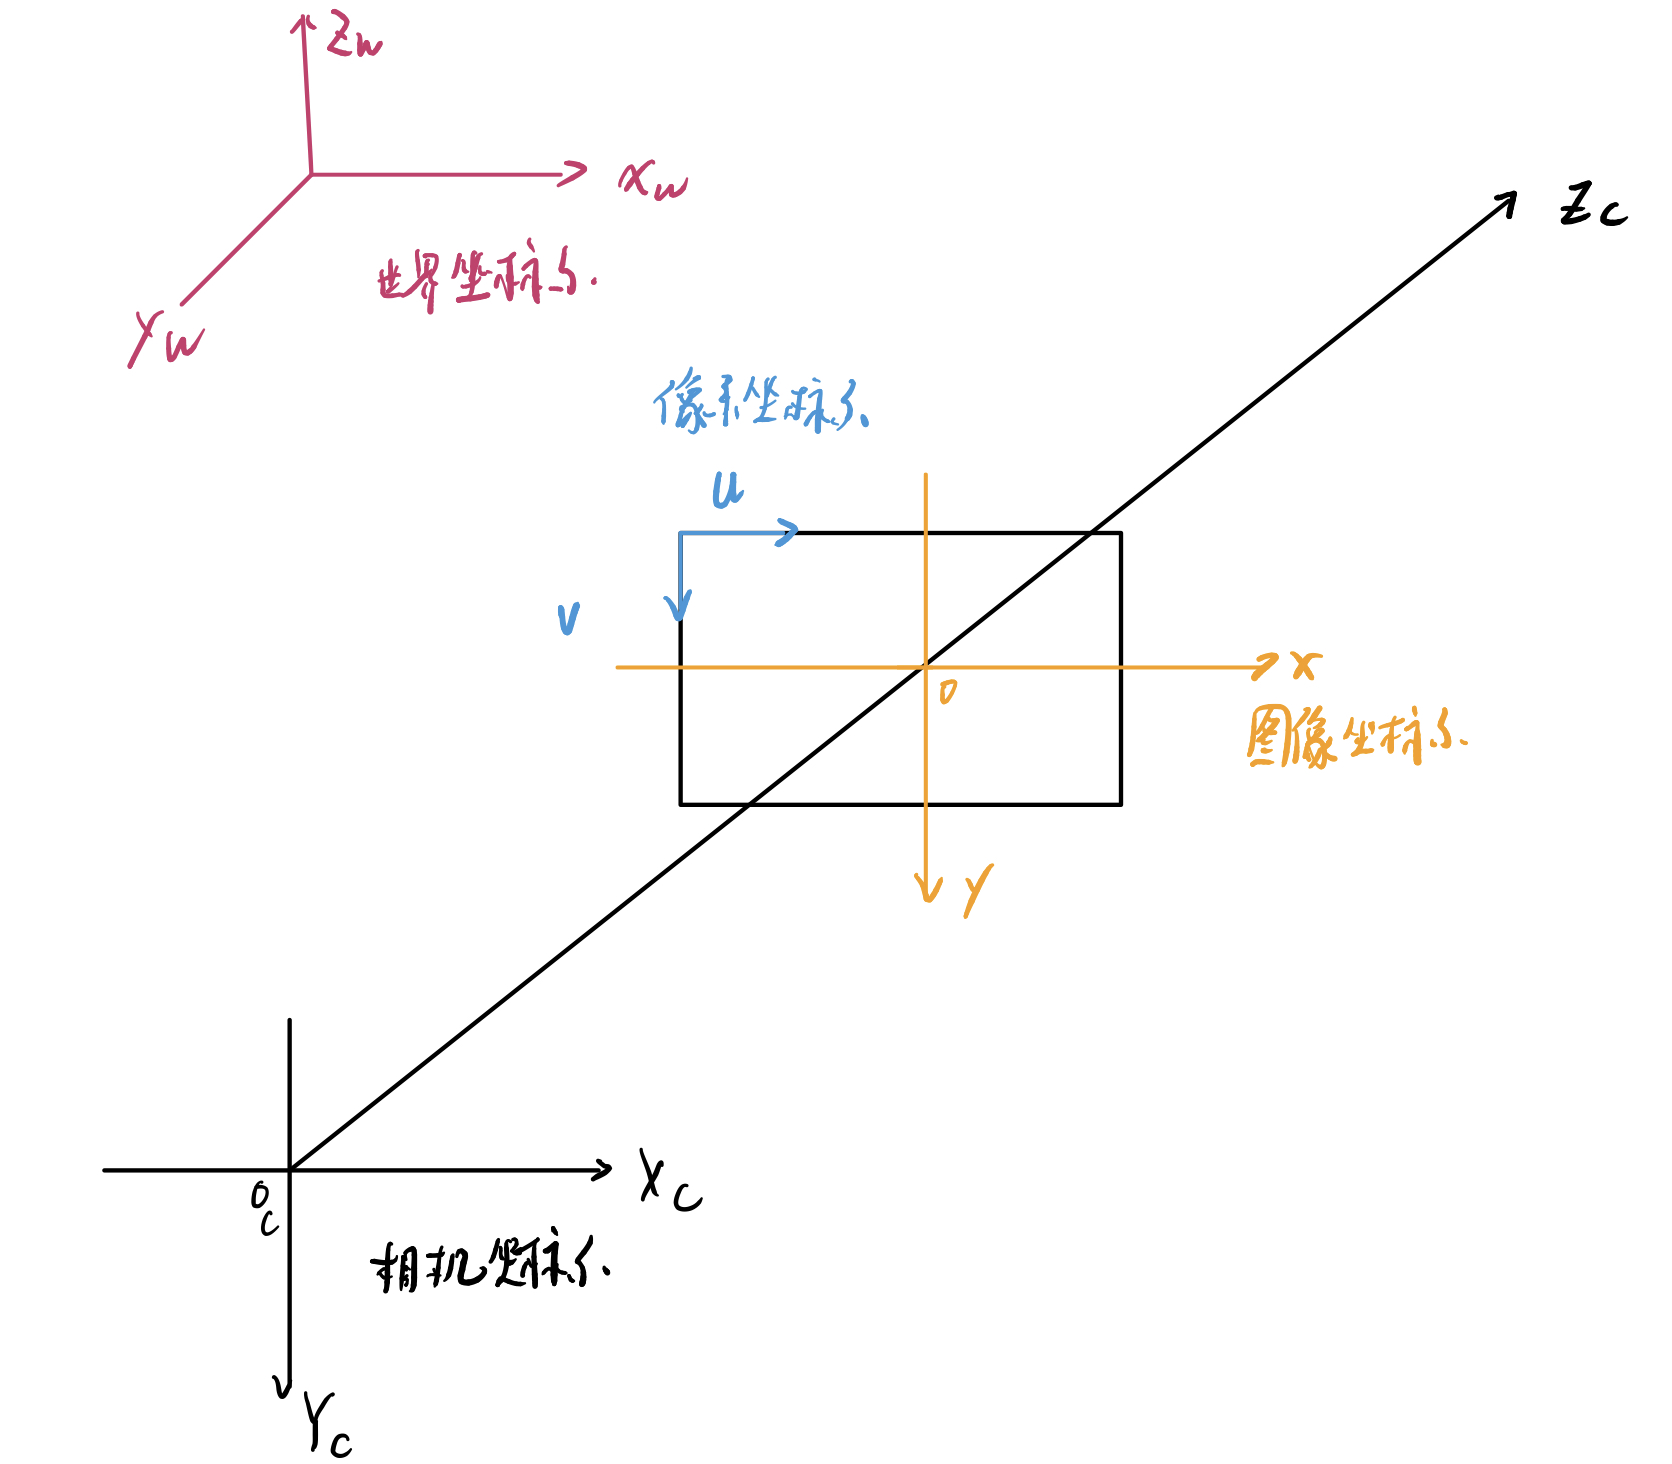 Zw
Xw
世界坐标系.
Yw
Zc
像素坐标系
u
v
x
o
图像坐标系.
y
Xc
Oc
相机坐标系.
Yc